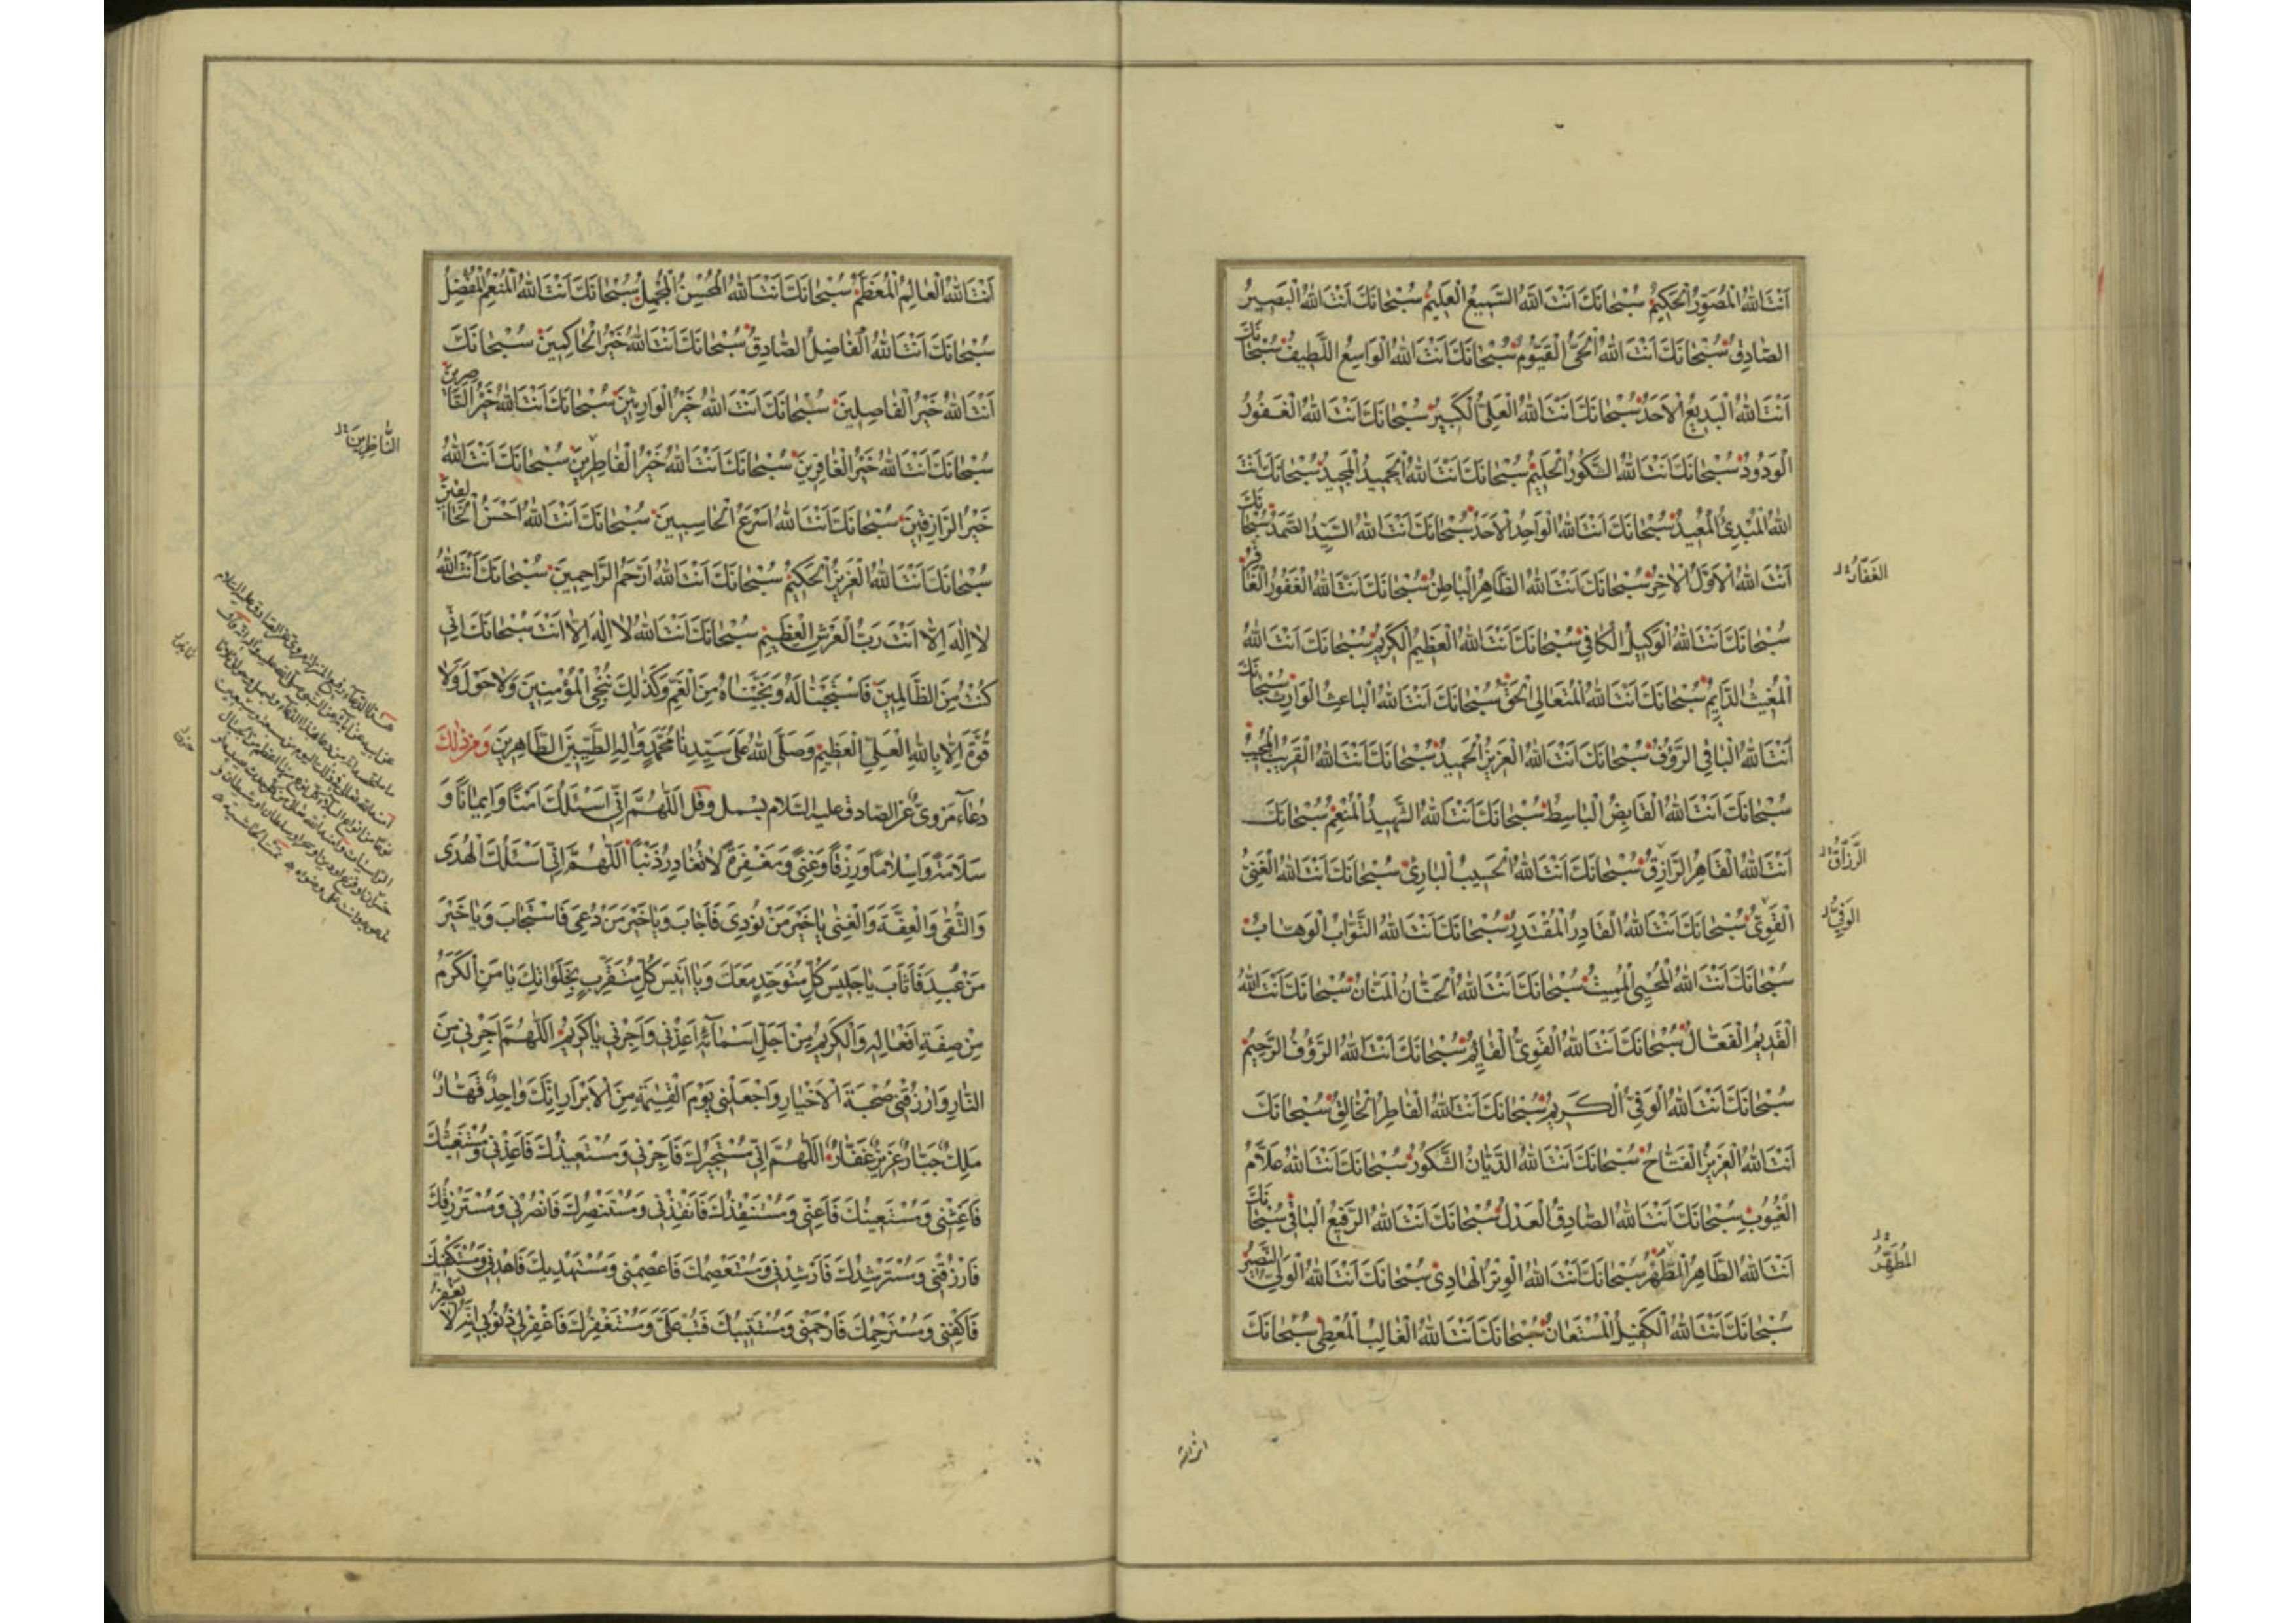 اَنْتَ اللهُ الْمُصَوِّرُ الْحَكِيمُ سُبْحانَكَ اَنْتَ اللهُ السَّمِيعُ الْعَلِيمُ سُبْحانَكَ اَنْتَ اللهُ الْبَصِيرُ
الصّادِقُ سُبْحانَكَ اَنْتَ اللهُ الْحَىُّ الْقَيُّومُ سُبْحانَكَ اَنْتَ اللهُ الْواسِعُ اللَّطِيفُ سُبْحانَكَ
اَنْتَ اللهُ الْبَدِيعُ الْاَحَدُ سُبْحانَكَ اَنْتَ اللهُ الْعَلِىُّ الْكَبِيرُ سُبْحانَكَ اَنْتَ اللهُ الْغَفُورُ
الْوَدُودُ سُبْحانَكَ اَنْتَ اللهُ الشَّكُورُ الْحَلِيمُ سُبْحانَكَ اَنْتَ اللهُ الْحَمِيدُ الْمَجِيدُ سُبْحانَكَ اَنْتَ
اللهُ الْمُبْدِئُ الْمُعِيدُ سُبْحانَكَ اَنْتَ اللهُ الْواحِدُ الْاَحَدُ سُبْحانَكَ اَنْتَ اللهُ السَّيِّدُ الصَّمَدُ سُبْحانَكَ
اَنْتَ اللهُ الْاَوَّلُ الْاخِرُ سُبْحانَكَ اَنْتَ اللهُ الظّاهِرُ الْباطِنُ سُبْحانَكَ اَنْتَ اللهُ الْغَفُورُ الْغافِرُ
الْغَفّارُ
سُبْحانَكَ اَنْتَ اللهُ الْوَكِيلُ الْكافِى سُبْحانَكَ اَنْتَ اللهُ الْعَظِيمُ الْكَرِيمُ سُبْحانَكَ اَنْتَ اللهُ
الْمُغِيثُ الدّايِمُ سُبْحانَكَ اَنْتَ اللهُ الْمُتَعالِى الْحَقُّ سُبْحانَكَ اَنْتَ اللهُ الْباعِثُ الْوارِثُ سُبْحانَكَ
اَنْتَ اللهُ الْباقِى الرَّؤُفُ سُبْحانَكَ اَنْتَ اللهُ الْعَزِيزُ الْحَمِيدُ سُبْحانَكَ اَنْتَ اللهُ الْقَرِيبُ الْمُجِيبُ
سُبْحانَكَ اَنْتَ اللهُ الْقابِضُ الْباسِطُ سُبْحانَكَ اَنْتَ اللهُ الشَّهِيدُ الْمُنْعِمُ سُبْحانَكَ
اَنْتَ اللهُ الْقاهِرُ الرّازِقُ سُبْحانَكَ اَنْتَ اللهُ الْحَسِيبُ الْبارِئُ سُبْحانَكَ اَنْتَ اللهُ الْغَنِىُّ
الرَّزّاقُ
الْقَوِىُّ سُبْحانَكَ اَنْتَ اللهُ الْقادِرُ الْمُقْتَدِرُ سُبْحانَكَ اَنْتَ اللهُ التَّوّابُ الْوَهّابُ
الْوَفِىُّ
سُبْحانَكَ اَنْتَ اللهُ الْمُحْيِى الْمُمِيتُ سُبْحانَكَ اَنْتَ اللهُ الْحَنّانُ الْمَنّانُ سُبْحانَكَ اَنْتَ اللهُ
الْقَدِيمُ الْفَعّالُ سُبْحانَكَ اَنْتَ اللهُ الْقَوِىُّ الْقائِمُ سُبْحانَكَ اَنْتَ اللهُ الرَّؤُفُ الرَّحِيمُ
سُبْحانَكَ اَنْتَ اللهُ الْوَفِىُّ الْكَرِيمُ سُبْحانَكَ اَنْتَ اللهُ الْفاطِرُ الْخالِقُ سُبْحانَكَ
اَنْتَ اللهُ الْعَزِيزُ الْفَتّاحُ سُبْحانَكَ اَنْتَ اللهُ الدَّيّانُ الشَّكُورُ سُبْحانَكَ اَنْتَ اللهُ عَلّامُ
الْغُيُوبِ سُبْحانَكَ اَنْتَ اللهُ الصّادِقُ الْعَدْلُ سُبْحانَكَ اَنْتَ اللهُ الرَّفِيعُ الْباقِى سُبْحانَكَ
اَنْتَ اللهُ الطّاهِرُ الطُّهْرُ سُبْحانَكَ اَنْتَ اللهُ الْوِتْرُ الْهادِى سُبْحانَكَ اَنْتَ اللهُ الْوَلِىُّ النَّصِيرُ
الْمُطَهِّرُ
سُبْحانَكَ اَنْتَ اللهُ الْكَفِيلُ الْمُسْتَعانُ سُبْحانَكَ اَنْتَ اللهُ الْغالِبُ الْمُعْطِى سُبْحانَكَ
انت الله
اَنْتَ اللهُ الْعالِمُ الْمُعَظَّمُ سُبْحانَكَ اَنْتَ اللهُ الْمُحْسِنُ الْمُجْمِلُ سُبْحانَكَ اَنْتَ اللهُ الْمُنْعِمُ الْمُفْضِلُ
سُبْحانَكَ اَنْتَ اللهُ الْفاضِلُ الصّادِقُ سُبْحانَكَ اَنْتَ اللهُ خَيْرُ الْحاكِمِينَ سُبْحانَكَ
اَنْتَ اللهُ خَيْرُ الْفاصِلِينَ سُبْحانَكَ اَنْتَ اللهُ خَيْرُ الْوارِثِينَ سُبْحانَكَ اَنْتَ اللهُ خَيْرُ النّاصِرِينَ
سُبْحانَكَ اَنْتَ اللهُ خَيْرُ الْغافِرِينَ سُبْحانَكَ اَنْتَ اللهُ خَيْرُ الْفاطِرِينَ سُبْحانَكَ اَنْتَ اللهُ
النّاظِرِينَ
خَيْرُ الرّازِقِينَ سُبْحانَكَ اَنْتَ اللهُ اَسْرَعُ الْحاسِبِينَ سُبْحانَكَ اَنْتَ اللهُ اَحْسَنُ الْخالِقِينَ
سُبْحانَكَ اَنْتَ اللهُ الْعَزِيزُ الْحَكِيمُ سُبْحانَكَ اَنْتَ اللهُ اَرْحَمُ الرّاحِمِينَ سُبْحانَكَ اَنْتَ اللهُ
لا اِلهَ اِلّا اَنْتَ رَبُّ الْعَرْشِ الْعَظِيمِ سُبْحانَكَ اَنْتَ اللهُ لا اِلهَ اِلّا اَنْتَ سُبْحانَكَ اِنِّى
كُنْتُ مِنَ الظّالِمِينَ فَاسْتَجَبْنا لَهُ وَنَجَّيْناهُ مِنَ الْغَمِّ وَكَذلِكَ نُنْجِى الْمُؤْمِنِينَ وَلا حَوْلَ وَلا
قُوَّةَ اِلّا بِاللهِ الْعَلِىِّ الْعَظِيمِ وَصَلَّى اللهُ عَلى سَيِّدِنا مُحَمَّدٍ وَالِهِ الطَّيِّبِينَ الطّاهِرِينَ وَمِنْ ذلِكَ
دُعاءٌ مَرْوِىٌّ عَنِ الصّادِقِ عليه السَّلام بسمل وقل اَللّهُمَّ اِنِّى اَسْئَلُكَ اَمْنًا وَاِيمانًا وَ
سَلامَةً وَاِسْلامًا وَرِزْقًا وَغِنًى وَمَغْفِرَةً لا تُغادِرُ ذَنْبًا اَللّهُمَّ اِنِّى اَسْئَلُكَ الْهُدى
وَالتُّقى وَالْعِفَّةَ وَالْغِنى يا خَيْرَ مَنْ نُودِىَ فَاَجابَ وَيا خَيْرَ مَنْ دُعِىَ فَاسْتَجابَ وَيا خَيْرَ
مَنْ عُبِدَ فَاَثابَ يا جَلِيسَ كُلِّ مُتَوَحِّدٍ مَعَكَ وَيا اَنِيسَ كُلِّ مُتَقَرِّبٍ بِخَلَواتِكَ يا مَنِ الْكَرَمُ
مِنْ صِفَةِ اَفْعالِهِ وَالْكَرِيمُ مِنْ اَجَلِّ اَسْمائِهِ اَعِذْنِى وَاَجِرْنِى يا كَرِيمُ اَللّهُمَّ اَجِرْنِى مِنَ
النّارِ وَارْزُقْنِى صُحْبَةَ الْاَخْيارِ وَاجْعَلْنِى يَوْمَ الْقِيمَةِ مِنَ الْاَبْرارِ اِنَّكَ واحِدٌ قَهّارٌ
مَلِكٌ جَبّارٌ عَزِيزٌ غَفّارٌ اَللّهُمَّ اِنِّى مُسْتَجِيرُكَ فَاَجِرْنِى وَمُسْتَعِيذُكَ فَاَعِذْنِى وَمُسْتَغِيثُكَ
فَاَغِثْنِى وَمُسْتَعِينُكَ فَاَعِنِّى وَمُسْتَنْقِذُكَ فَاَنْقِذْنِى وَمُسْتَنْصِرُكَ فَانْصُرْنِى وَمُسْتَرْزِقُكَ
فَارْزُقْنِى وَمُسْتَرْشِدُكَ فَاَرْشِدْنِى وَمُسْتَعْصِمُكَ فَاعْصِمْنِى وَمُسْتَهْدِيكَ فَاهْدِنِى وَمُسْتَكْفِيكَ
فَاكْفِنِى وَمُسْتَرْحِمُكَ فَارْحَمْنِى وَمُسْتَتِيبُكَ فَتُبْ عَلَىَّ وَمُسْتَغْفِرُكَ فَاغْفِرْ لِى ذُنُوبِى اِنَّهُ لا يَغْفِرُ